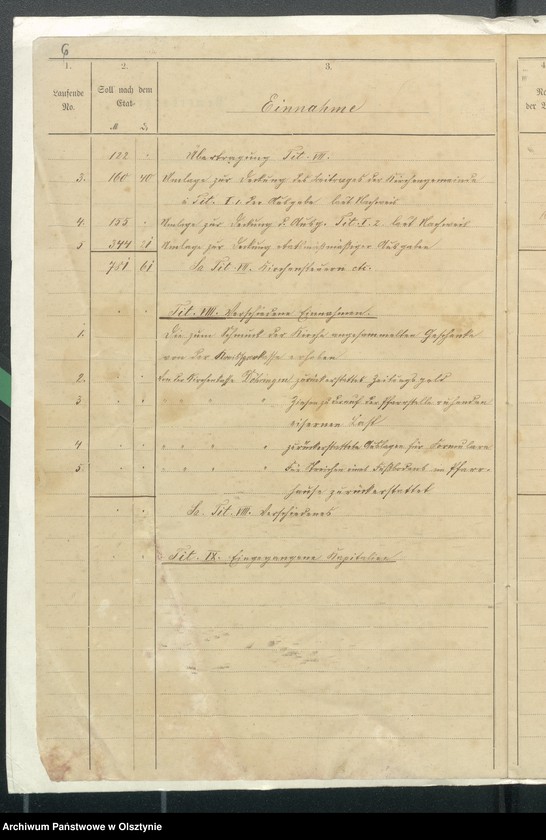 6
1. 2. 3. 4
Laufende No. Soll nach dem Etat. Einnahme
M
122 . Übertragung Tit. VII.
3. 160 40 Umlage zur Deckung des Beitrages der Kirchengemeinde
Tit. der Ausgabe laut Nachweis
4. 155 . Umlage zur Deckung d. Ausg. Tit. X. 2. laut Nachweis
5 344 21 Umlage zur Deckung etatsmäßiger Ausgaben
781 61 Sa Tit. VII. Kirchensteuern etc.
Tit. VIII. Verschiedene Einnahmen.
1. Die zum Schmuck der Kirche angesammelten Geschenke
von der Kreissparkasse erhoben
2. Von der Kirchenkasse zurückerstattet Zeitungsgeld
3 " " " " Zinsen der auf der Pfarrstelle ruhenden
eisernen Last
4 " " " " zurückerstattete Auslagen für Formulare
5. " " " " Für Streichen eines Fußbodens im Pfarr-
hause zurückerstattet
Sa. Tit. VIII. Verschiedenes
Tit. IX. Eingegangene Kapitalien
Archiwum Państwowe w Olsztynie